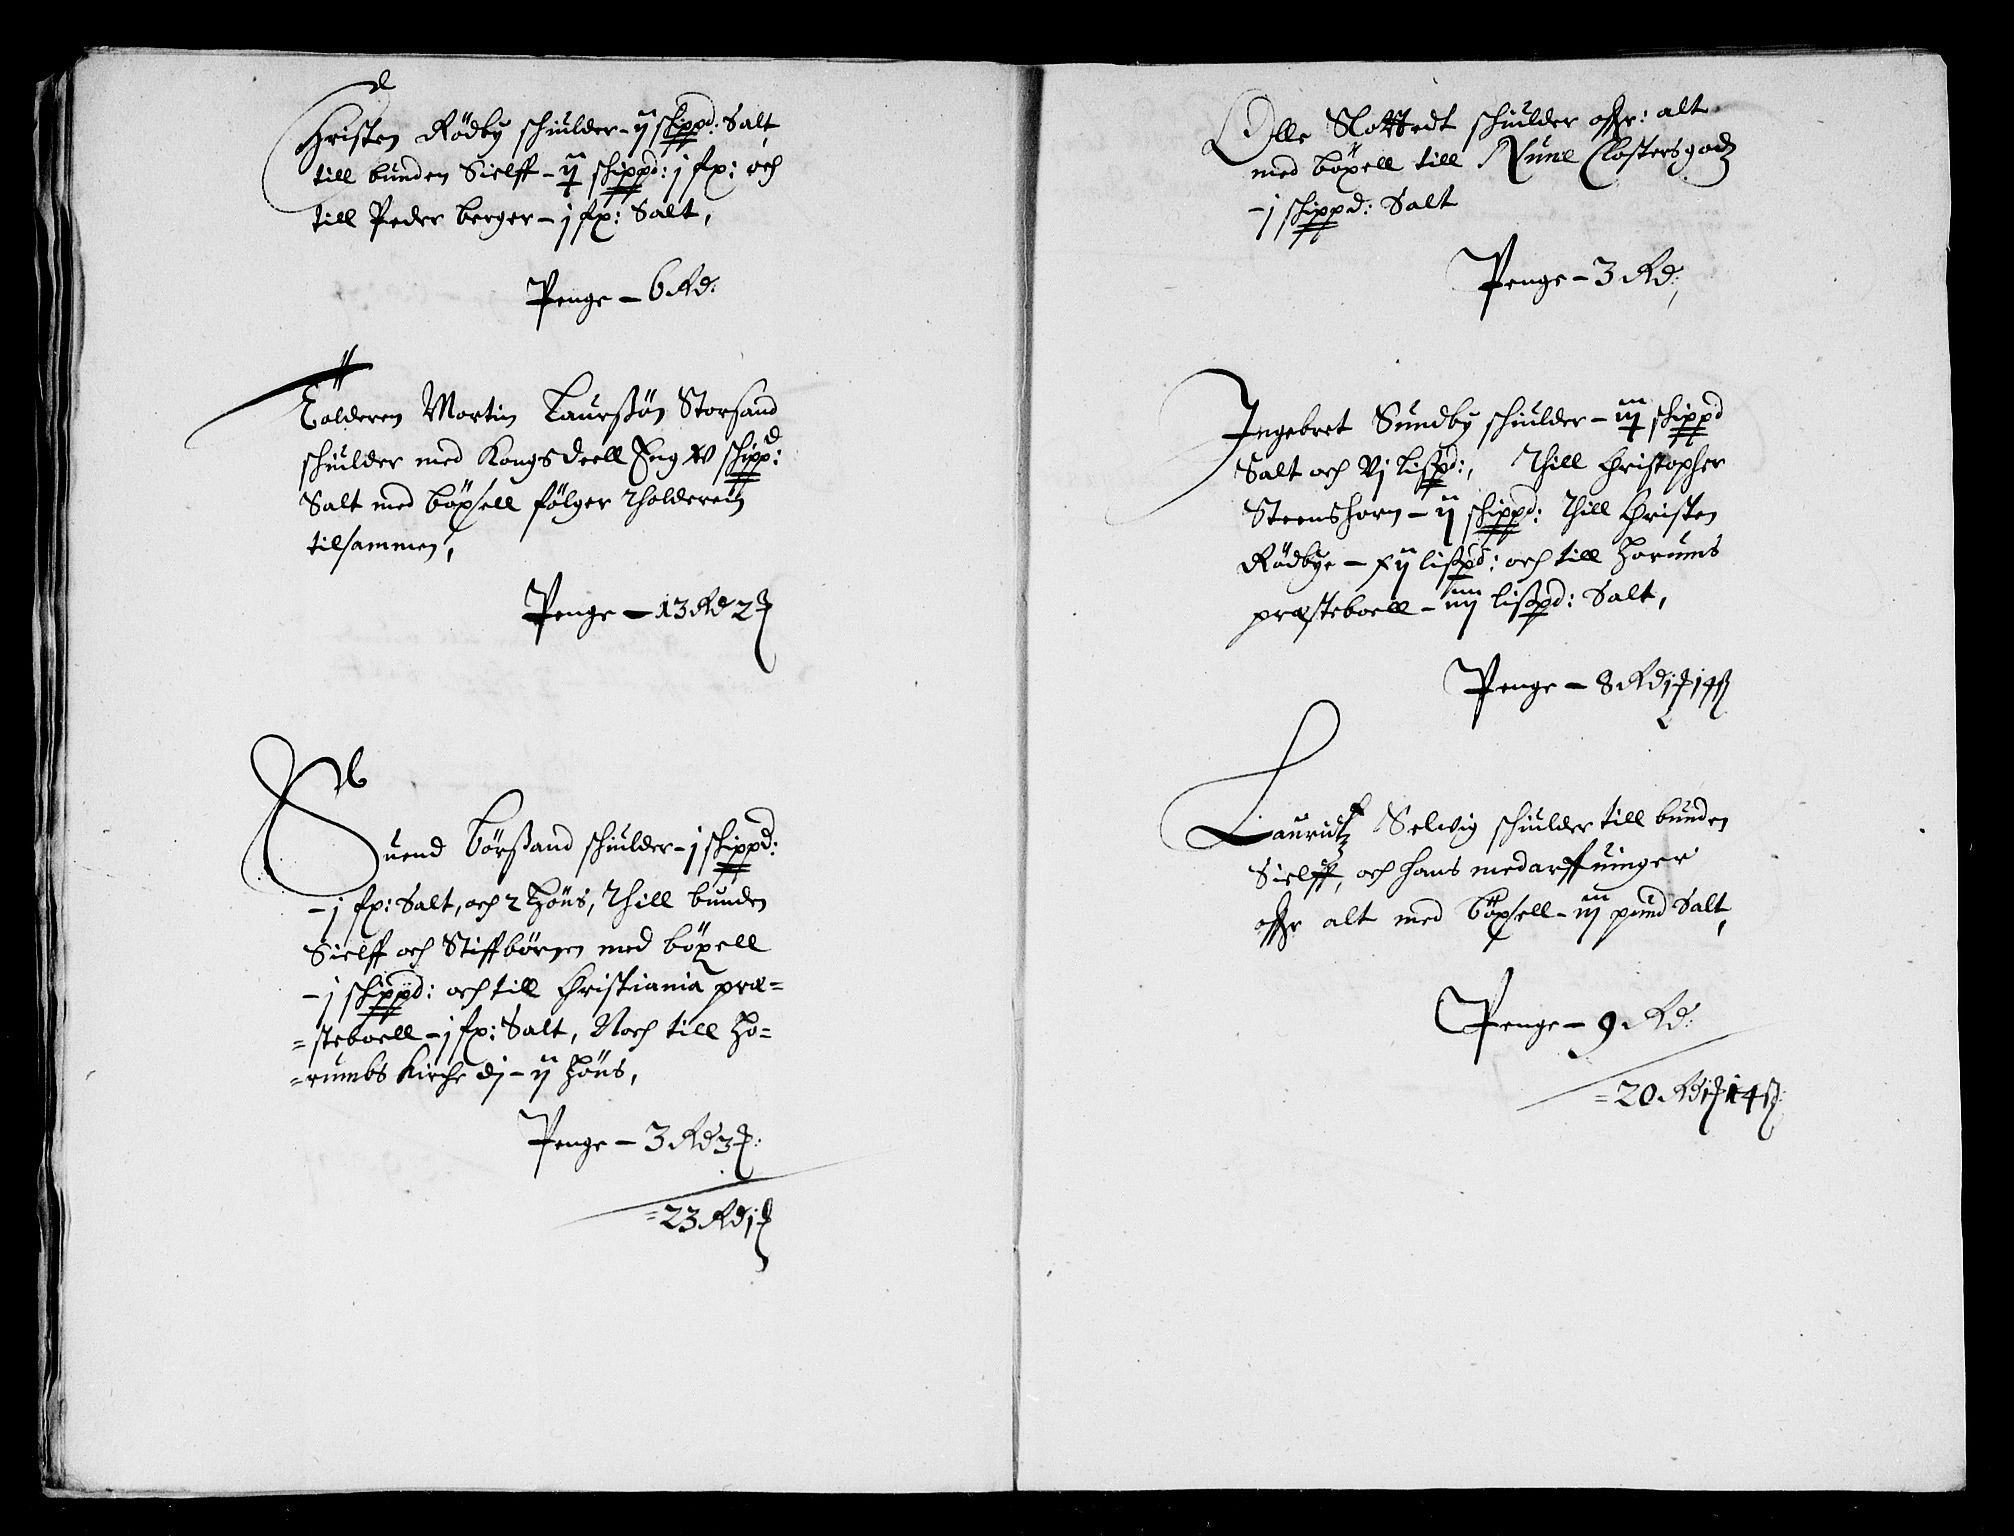 Christen Rödby schiulder - ij schippd: Salt
till bunden Sielff - ij schippd: j fx: och
till Peder berger - j fx: Salt,
Penge - 6 Rd:
Tolderen Mortin Laursßøn Storsand
schiulder med Kongs deell Eng xv schippd:
Salt med böxsell fölger Tholderein
tilsammen,
Penge - 13 Rd 2 ȷ
Suend Börsand schiulder - j schippd:
- j fx: Salt, och 2 Höns, Thill bunden
Sielff och Stiffbörnen med böxell
- j schippd: och till Christiania præ=
=steboell - j fx: Salt, Noch till Ho=
=rumbs Kirche dj - ij Höns,
Penge - 3 Rd 3 ȷ:
=23 Rd j ȷ
Olle Slottedt schiulder offr: alt
med böxell till Nune Closters godz
- j schippd: Salt
Penge - 3 Rd:
Ingebret Sundby schiulder - iij schippd
Salt och vj lißpd:, Thill Christopher
Steenshorn - ij schippd: Thill Christen
Rödbye - xij lißpd: och till Horums
præsteboell - iiij lißpd: Salt,
Penge - 8 Rd j ȷ 14 ß
Lauridtz Selvig schiulder till bunden
Sielff, och hans medarffuinger
offr alt med böxsell - iij pund Salt,
Penge - 9 Rd:
=20 Rd j ȷ 14 ß: